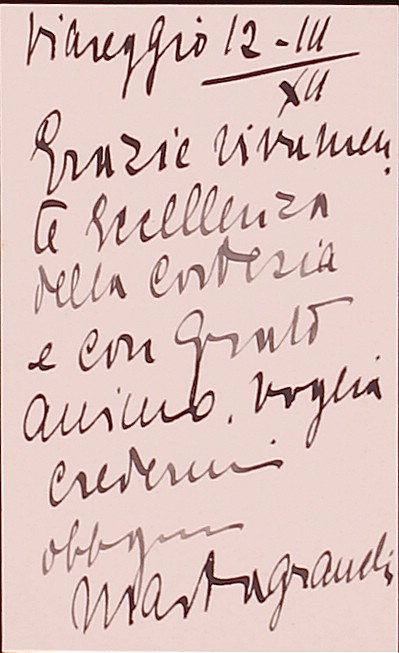 Viareggio 12-III
XII
Grazie vivamen
te Eccellenza
della cortesia
e con grato
animo. Voglia
credermi
obbgmo
Martagrandi